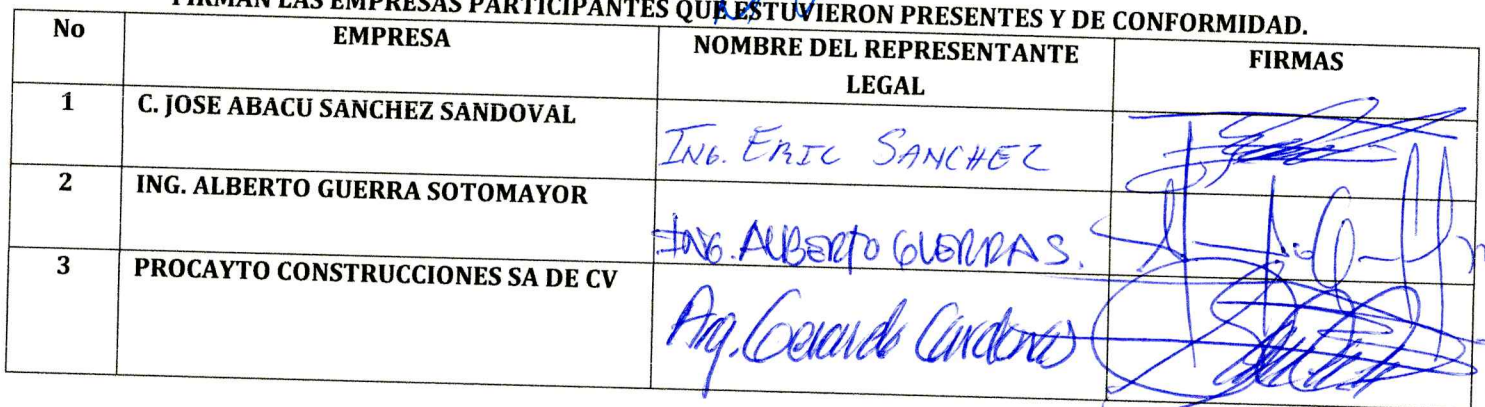 FIRMAN LAS EMPRESAS PARTICIPANTES QUE ESTUVIERON PRESENTES Y DE CONFORMIDAD.
No EMPRESA NOMBRE DEL REPRESENTANTE LEGAL FIRMAS
1 C. JOSE ABACU SANCHEZ SANDOVAL ING. ERIC SANCHEZ
2 ING. ALBERTO GUERRA SOTOMAYOR ING. ALBERTO GUERRA S.
3 PROCAYTO CONSTRUCCIONES SA DE CV Arq. Gerardo Cardenas